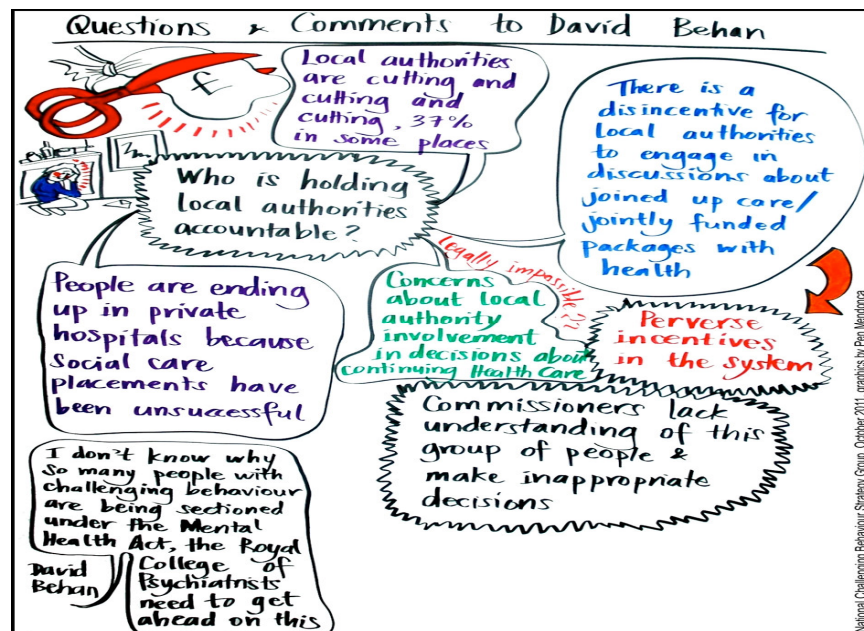 Questions & Comments to David Behan
£
Local authorities
are cutting and
cutting and
cutting, 37%
in some places
Who is holding
local authorities
accountable?
There is a
disincentive for
local authorities
to engage in
discussions about
joined up care/
jointly funded
packages with
health
People are ending
up in private
hospitals because
social care
placements have
been unsuccessful
legally impossible??
Concerns
about local
authority
involvement
in decisions about
continuing Health Care
Perverse
incentives
in the system
Commissioners lack
understanding of this
group of people &
make inappropriate
decisions
I don't know why
so many people with
challenging behaviour
are being sectioned
under the Mental
Health Act, the Royal
College of
Psychiatrists
need to get
ahead on this
David
Behan
National Challenging Behaviour Strategy Group, October 2011, graphics by Pen Mendonca